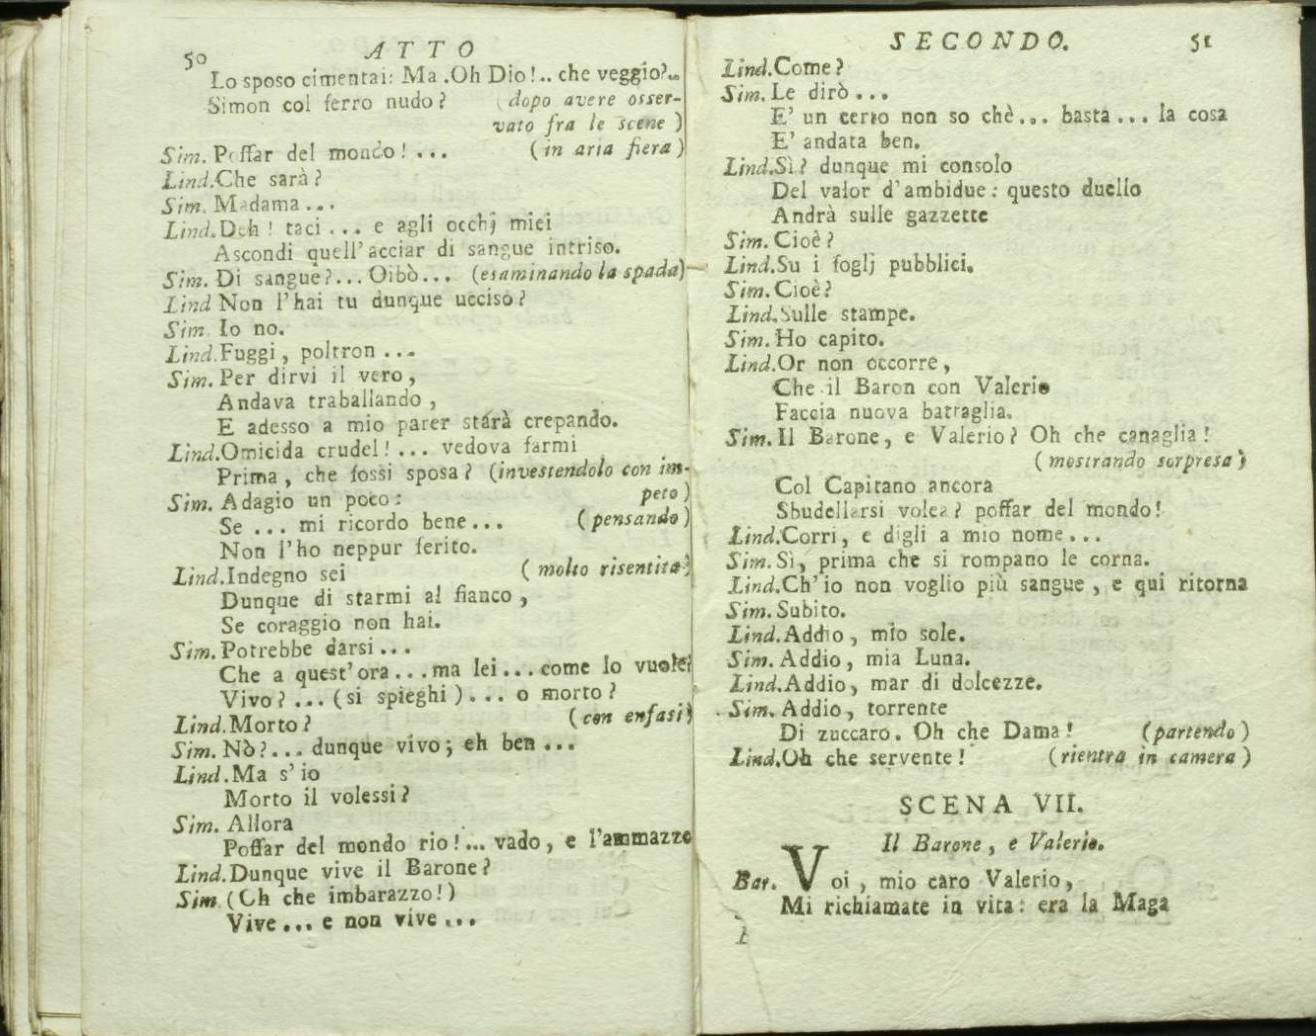 50
ATTO
Lo sposo cimentai: Ma .Oh Dio!.. che veggio?..
Simon col ferro nudo? (dopo avere osser-
vato fra le scene )
Sim. Poffar del mondo! ... (in aria fiera)
Lind.Che sarà?
Sim. Madama...
Lind.Deh! taci ... e agli occhj miei
Ascondi quell'acciar di sangue intriso.
Sim. Di sangue?... Oibò... (esaminando la spada)
Lind Non l'hai tu dunque ucciso?
Sim Io no.
Lind.Fuggi, poltron ...
Sim. Per dirvi il vero,
Andava traballando,
E adesso a mio parer starà crepando.
Lind.Omicida crudel! ... vedova farmi
Prima, che fossi sposa? (investendolo con im-
peto)
Sim. Adagio un poco:
Se ... mi ricordo bene... (pensando)
Non l'ho neppur ferito.
Lind.Indegno sei ( molto risentita)
Dunque di starmi al fianco,
Se coraggio non hai.
Sim. Potrebbe darsi...
Che a quest'ora...ma lei...come lo vuole?
Vivo? ...(si spieghi)... o morto?
Lind.Morto? (con enfasi)
Sim. Nò?... dunque vivo; eh ben ...
Lind.Ma s'io
Morto il volessi?
Sim. Allora
Poffar del mondo rio!... vado, e l'ammazzo
Lind.Dunque vive il Barone?
Sim (Oh che imbarazzo!)
Vive... e non vive...
SECONDO. 51
Lind.Come?
Sim. Le dirò...
E' un certo non so chè... basta... la cosa
E' andata ben.
Lind.Sì? dunque mi consolo
Del valor d'ambidue: questo duello
Andrà sulle gazzette
Sim. Cioè?
Lind.Su i foglj pubblici.
Sim. Cioè?
Lind.Sulle stampe.
Sim. Ho capito.
Lind.Or non occorre,
Che il Baron con Valerio
Faccia nuova battaglia.
Sim. Il Barone, e Valerio? Oh che canaglia!
(mostrando sorpresa)
Col Capitano ancora
Sbudellarsi volea? poffar del mondo!
Lind.Corri, e digli a mio nome...
Sim. Sì, prima che si rompano le corna.
Lind.Ch'io non voglio più sangue, e qui ritorna
Sim. Subito.
Lind.Addio, mio sole.
Sim. Addio, mia Luna.
Lind.Addio, mar di dolcezze.
Sim. Addio, torrente
Di zuccaro. Oh che Dama! (partendo)
Lind.Oh che servente! (rientra in camera)
SCENA VII.
Il Barone, e Valerio.
Bar. Voi, mio caro Valerio,
Mi richiamate in vita: era la Maga